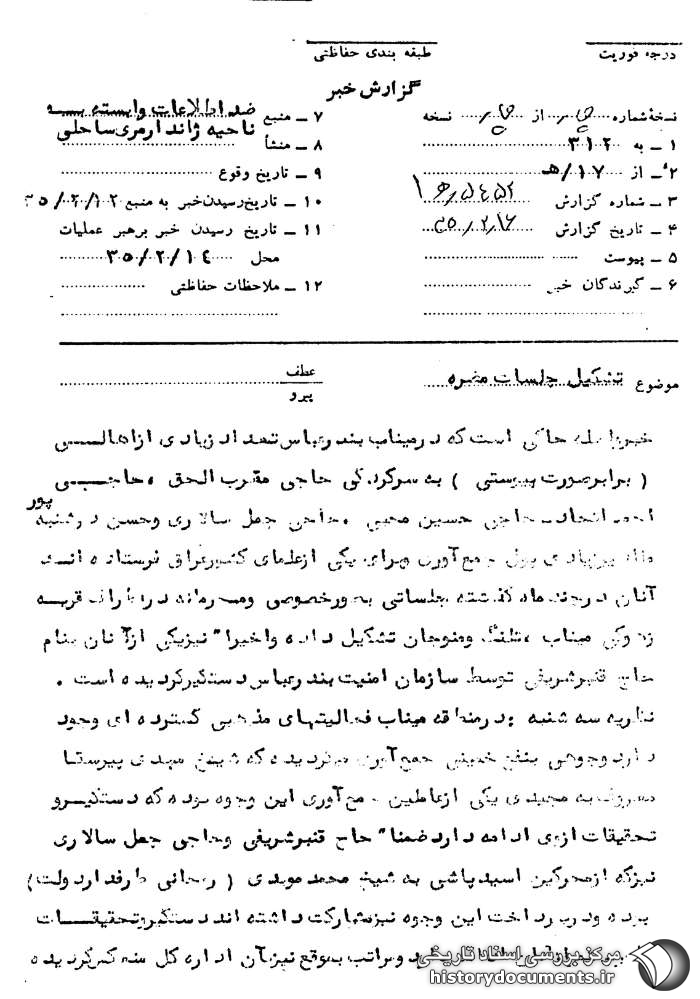 درجه فوریت
طبقه بندی حفاظتی
گزارش خبر
نسخهٔ شماره از نسخه
۱ – به ۳۱۲
۲ – از ۱۷/هـ
۳ – شماره گزارش
۴ – تاریخ گزارش ۳۵/۲/۱۶
۵ – پیوست
۶ – گیرندگان خبر
۷ – منبع ضد اطلاعات وابسته به ناحیه ژاندارمری ساحلی
۸ – منشأ
۹ – تاریخ وقوع
۱۰ – تاریخ رسیدن خبر به منبع ۳۵/۲/۱۲
۱۱ – تاریخ رسیدن خبر برهبر عملیات
محل ۳۵/۲/۱۴
۱۲ – ملاحظات حفاظتی
موضوع تشکیل جلسات مضره
عطف
پیرو
خبر واصله حاکی است که در میناب بندرعباس تعداد زیادی از اهالی
( برابر صورت پیوستی ) به سرکردگی حاجی مقرب الحق ، حاجی
پور
احمد حاجی حسین محبی ، حاجی جعل سالاری وحسن در شنبه
زیادی پول جمع آوری وبرای یکی از علمای کشور عراق فرستاده اند
آنان در چند ماه گذشته جلساتی بطور خصوصی ومحرمانه در اطراف قریه
میناب ومنوجان تشکیل داده واخیرا" نیز یکی از آنان بنام
حاج قنبر شریفی توسط سازمان امنیت بندرعباس دستگیر گردیده است .
نظریه سه شنبه : در منطقه میناب فعالیتهای مذهبی گسترده ای وجود
دارد ووجوهی بنفع خمینی جمع آوری میگردیده که شیخ مهدی پیرستا
معروف به مجیدی یکی از عاملین جمع آوری این وجوه بوده که دستگیر و
تحقیقات از وی ادامه دارد ضمنا" حاج قنبر شریفی وحاجی جعل سالاری
نیز که از محرکین اسید پاشی به شیخ محمد موبدی ( روحانی طرفدار دولت)
بوده ودر پرداخت این وجوه نیز مشارکت داشته اند دستگیر وتحقیقات
ومراتب به موقع نیز آن اداره کل گردیده
مرکز بررسی اسناد تاریخی
historydocuments.ir